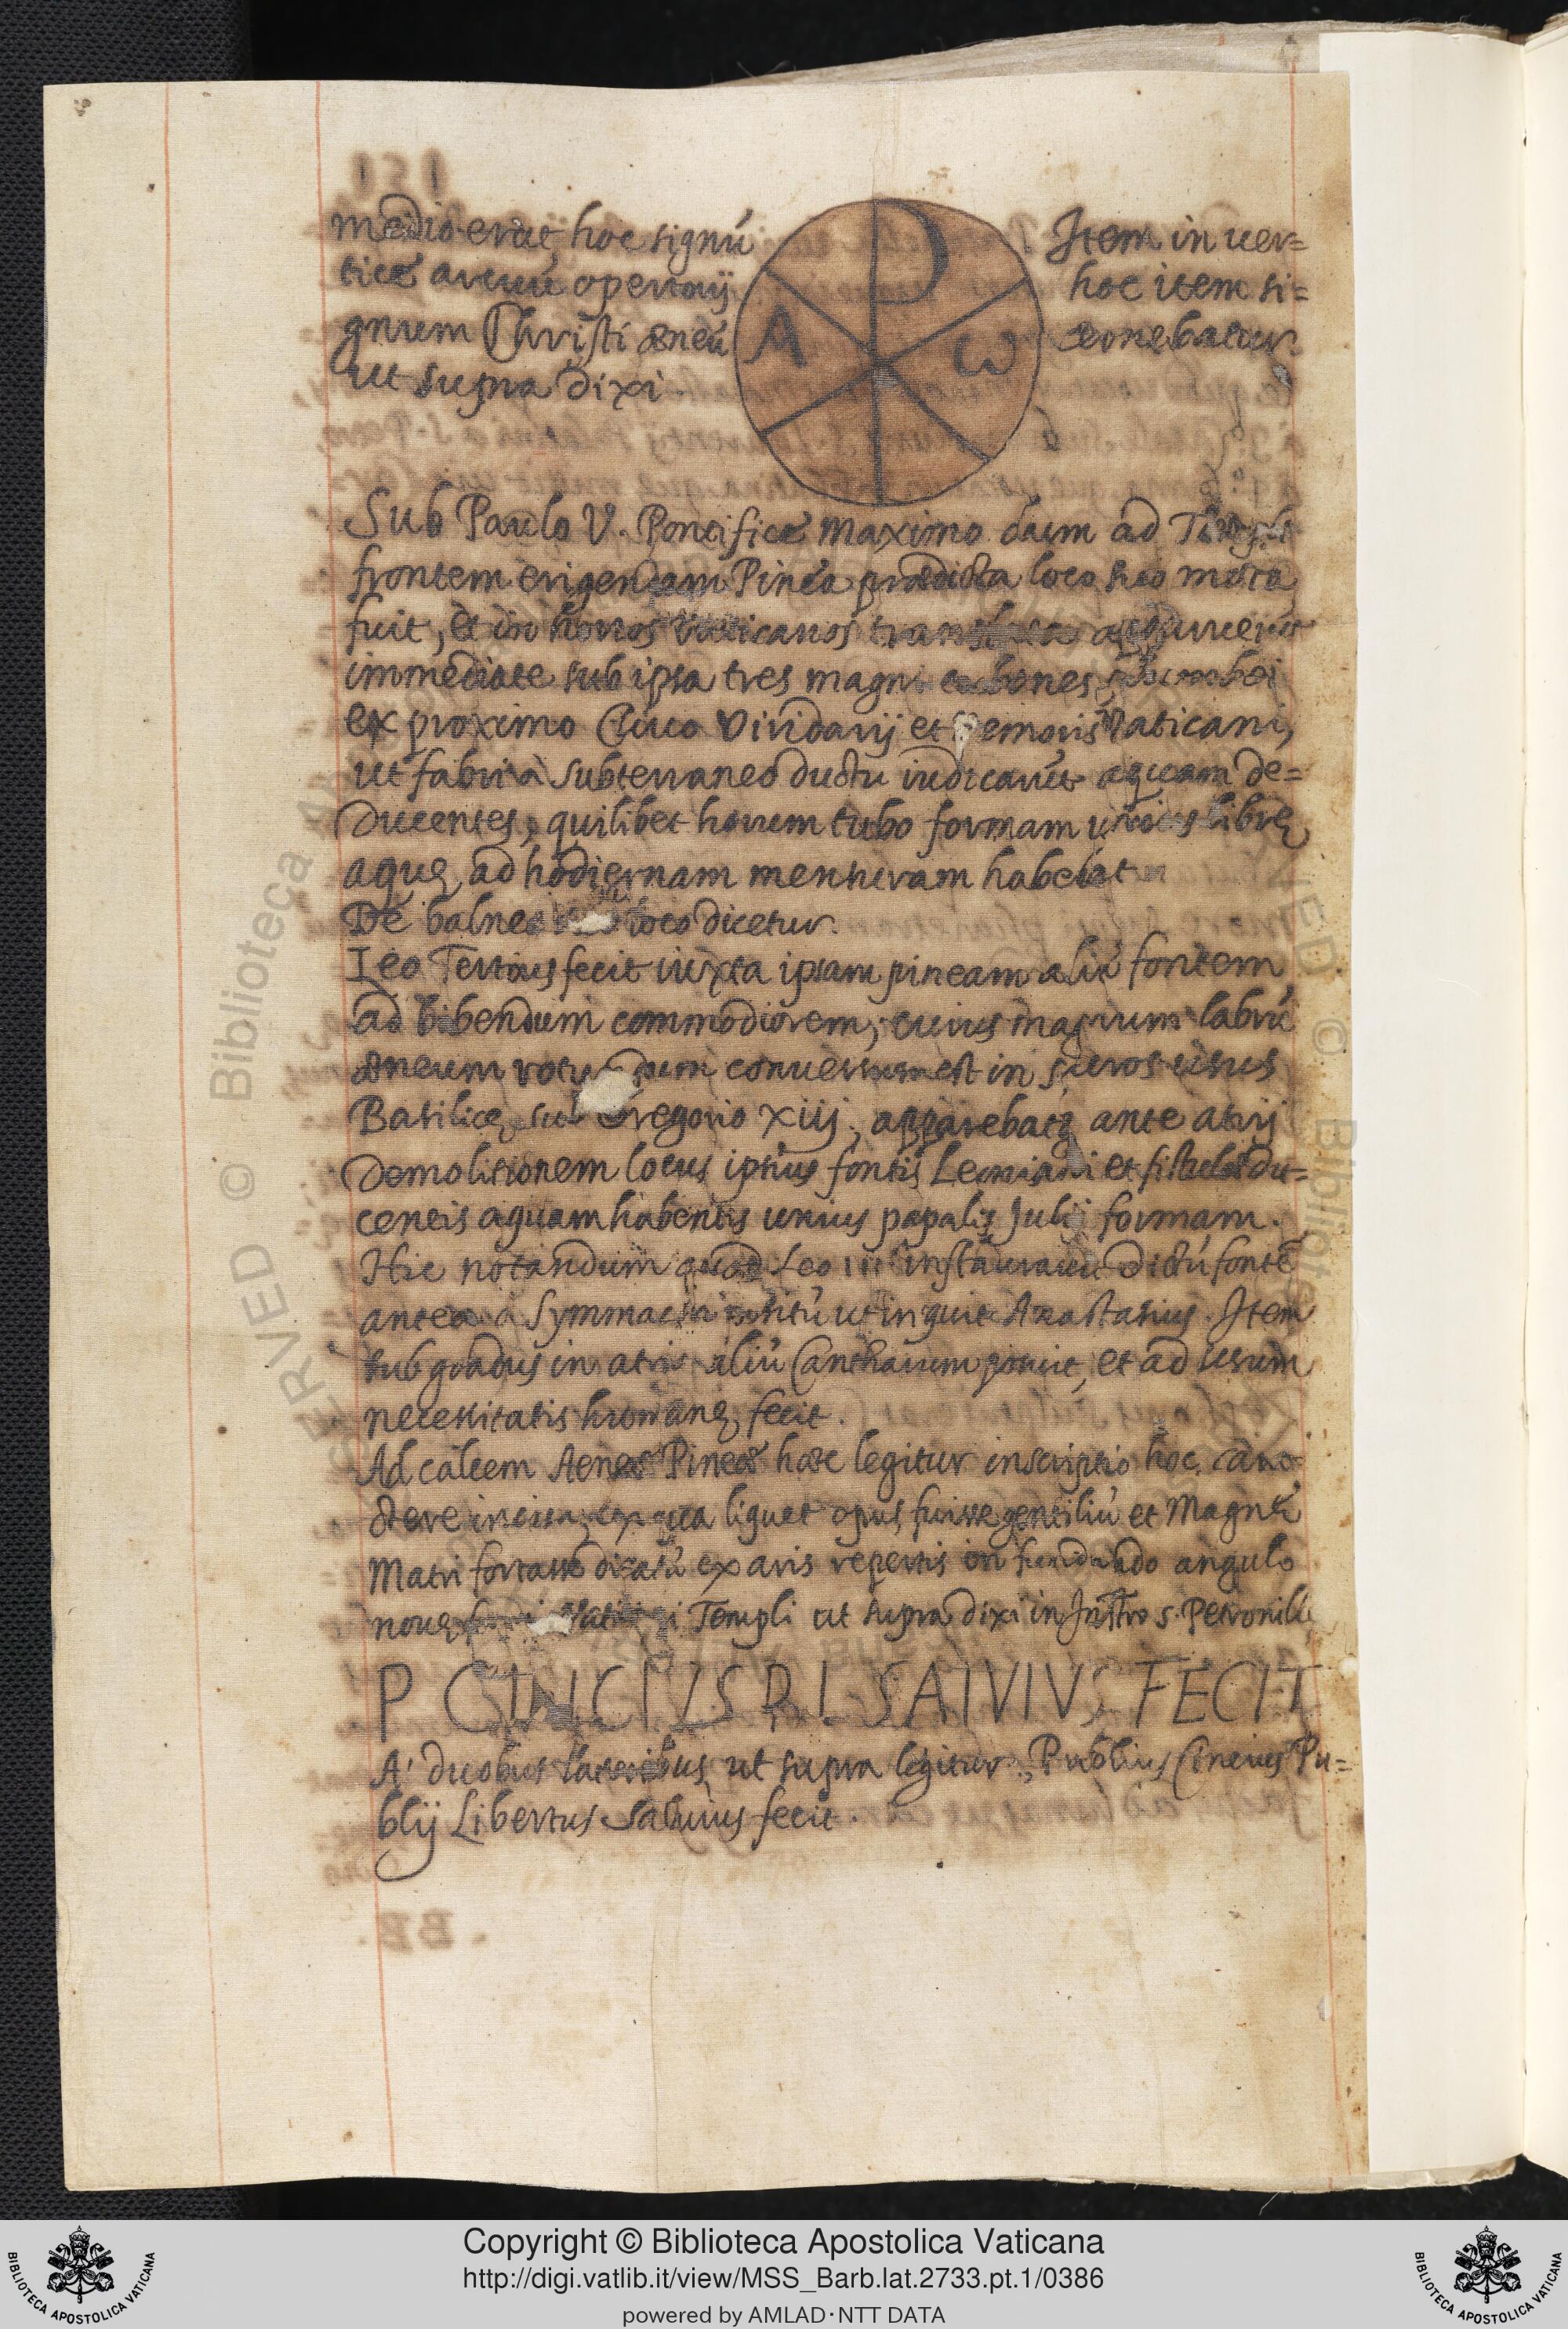 medio erat hoc signú Item in uer=
tice arcuú opertorij hoc item si=
gnum Christi æneú ponebatur
ut supra dixi
A ω
Sub Paulo V. Pontifice Maximo dum ad Templi
frontem erigendam Pinea prædicta loco suo mota
fuit, et in hortos Vaticanos translata apparuerút
immediate sub ipsa tres magni tubones plumbei
ex proximo Circo Viridarij et Nemoris Vaticani,
ut fabri à subterraneo ductu iudicarút aquam de=
ducentes, quilibet horum tubo formam unius librę
aquę ad hodiernam mensuram habebat
De balneo suo loco dicetur.
Leo Tertius fecit iuxta ipsam pineam aliú fontem
ad bibendum commodiorem, cuius magnum labrú
æneum rotundum conuersum est in sacros usus
Basilicę sub Gregorio xiij, apparebatq ante atrij
demolitionem locus ipsius fontis Leoniani et fistulæ du=
centis aquam habentis unius papalis Julij formam.
Hic notandum quod Leo III instaurauit dictú fonté
antea a Symmacho positú ut inquit Anastasius. Item
sub gradus in atrio aliú Cantharum posuit, et ad usum
necessitatis humanę fecit.
Ad calcem Aeneæ Pineæ hæc legitur inscriptio hoc cara=
ctere incisa, ex qua liquet opus fuisse gentiliú et Magnę
Matri fortasse dicatú ex aris repertis in fundando angulo
nouę Vaticani Templi ut supra dixi in Instro S. Petronillę
P CINCIVS P. L SALVIVS FECIT
A' duobus lateribus, ut supra legitur, Publius Cincius Pu=
blij Libertus Saluius fecit.
Copyright © Biblioteca Apostolica Vaticana
http://digi.vatlib.it/view/MSS_Barb.lat.2733.pt.1/0386
powered by AMLAD·NTT DATA
BIBLIOTECA APOSTOLICA VATICANA
BIBLIOTECA APOSTOLICA VATICANA